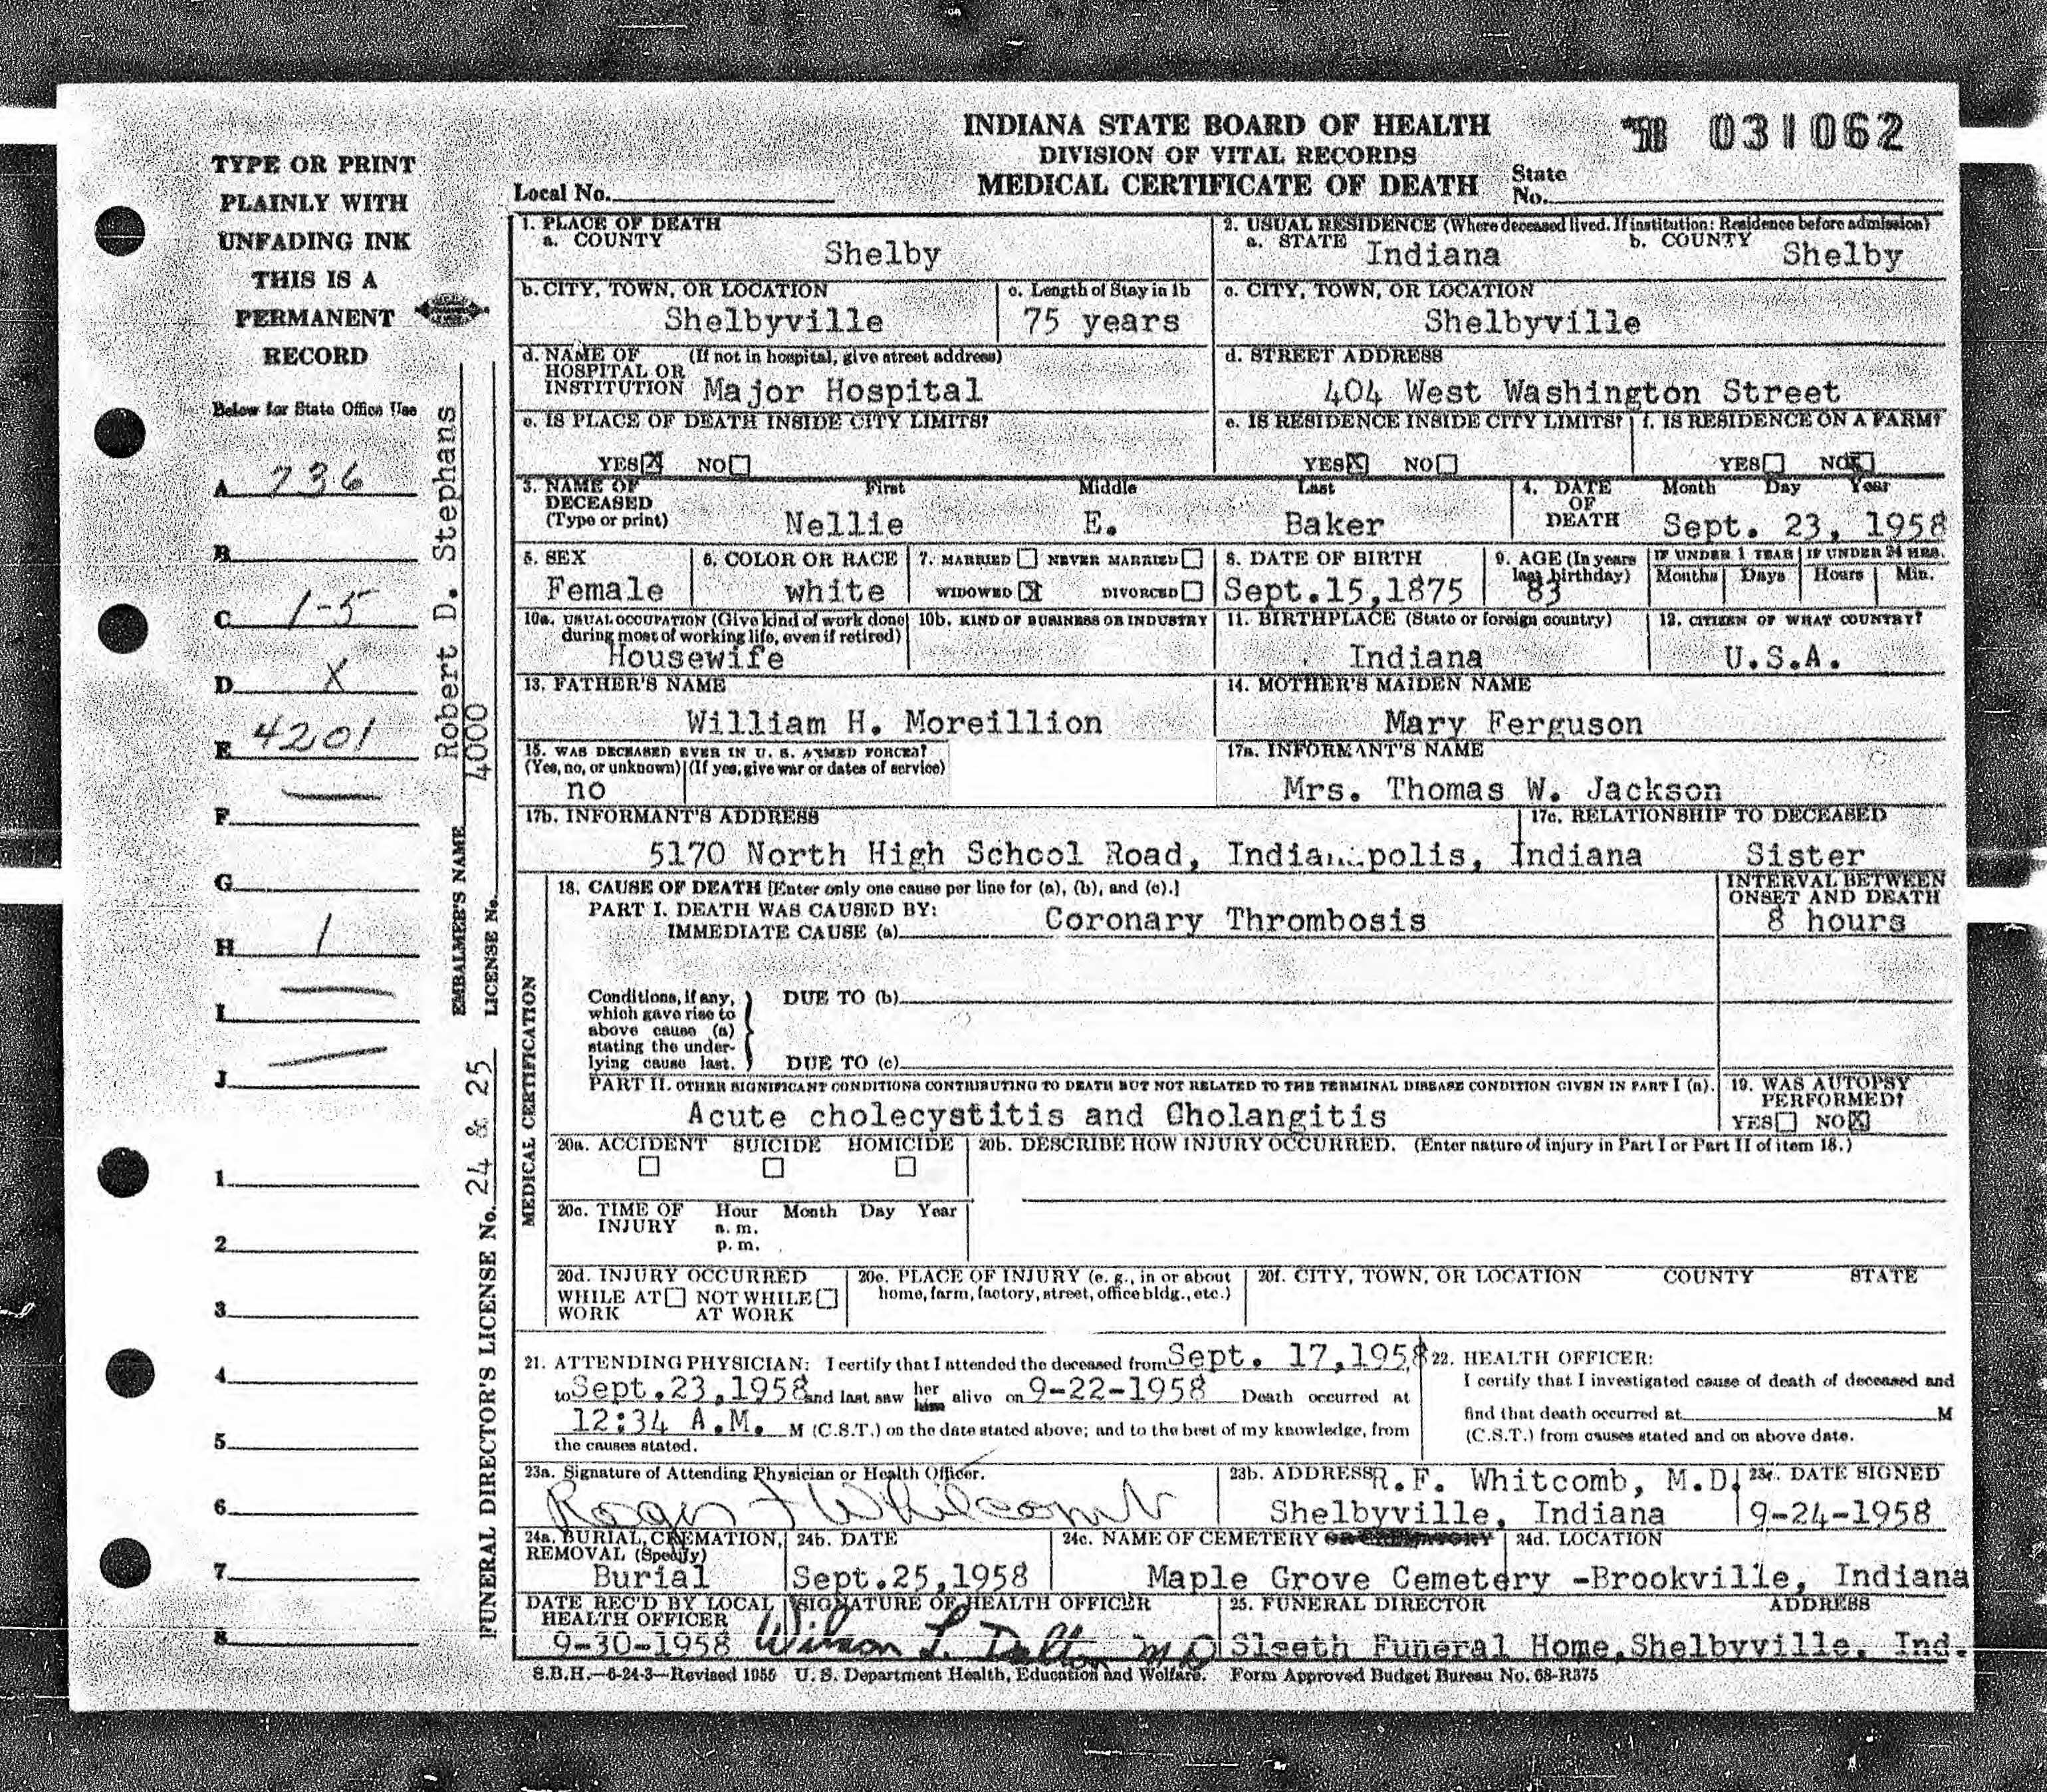 INDIANA STATE BOARD OF HEALTH
DIVISION OF VITAL RECORDS
MEDICAL CERTIFICATE OF DEATH
Local No.
State No.
031062
TYPE OR PRINT
PLAINLY WITH
UNFADING INK
THIS IS A
PERMANENT
RECORD
Below for State Office Use
A 736
B
C 1-5
D X
E 4201
F —
G
H 1
I —
J —
1
2
3
4
5
6
7
8
EMBALMER'S NAME Robert D. Stephans
LICENSE No. 4000
FUNERAL DIRECTOR'S LICENSE No. 24 & 25
1. PLACE OF DEATH
a. COUNTY Shelby
2. USUAL RESIDENCE (Where deceased lived. If institution: Residence before admission)
a. STATE Indiana b. COUNTY Shelby
b. CITY, TOWN, OR LOCATION Shelbyville
c. Length of Stay in 1b 75 years
c. CITY, TOWN, OR LOCATION Shelbyville
d. NAME OF HOSPITAL OR INSTITUTION (If not in hospital, give street address) Major Hospital
d. STREET ADDRESS 404 West Washington Street
e. IS PLACE OF DEATH INSIDE CITY LIMITS?
YES X NO
e. IS RESIDENCE INSIDE CITY LIMITS?
YES X NO
f. IS RESIDENCE ON A FARM?
YES NO X
3. NAME OF DECEASED (Type or print)
First Middle Last
Nellie E. Baker
4. DATE OF DEATH Month Day Year
Sept. 23, 1958
5. SEX Female
6. COLOR OR RACE white
7. MARRIED NEVER MARRIED
WIDOWED X DIVORCED
8. DATE OF BIRTH Sept.15,1875
9. AGE (In years last birthday) 83
IF UNDER 1 YEAR Months Days
IF UNDER 24 HRS. Hours Min.
10a. USUAL OCCUPATION (Give kind of work done during most of working life, even if retired) Housewife
10b. KIND OF BUSINESS OR INDUSTRY
11. BIRTHPLACE (State or foreign country) Indiana
12. CITIZEN OF WHAT COUNTRY? U.S.A.
13. FATHER'S NAME William H. Moreillion
14. MOTHER'S MAIDEN NAME Mary Ferguson
15. WAS DECEASED EVER IN U. S. ARMED FORCES?
(Yes, no, or unknown) (If yes, give war or dates of service)
no
17a. INFORMANT'S NAME Mrs. Thomas W. Jackson
17b. INFORMANT'S ADDRESS 5170 North High School Road, Indianapolis, Indiana
17c. RELATIONSHIP TO DECEASED Sister
MEDICAL CERTIFICATION
18. CAUSE OF DEATH [Enter only one cause per line for (a), (b), and (c).]
PART I. DEATH WAS CAUSED BY:
IMMEDIATE CAUSE (a) Coronary Thrombosis
INTERVAL BETWEEN ONSET AND DEATH 8 hours
Conditions, if any, which gave rise to above cause (a) stating the underlying cause last.
DUE TO (b)
DUE TO (c)
PART II. OTHER SIGNIFICANT CONDITIONS CONTRIBUTING TO DEATH BUT NOT RELATED TO THE TERMINAL DISEASE CONDITION GIVEN IN PART I (a).
Acute cholecystitis and Cholangitis
19. WAS AUTOPSY PERFORMED?
YES NO X
20a. ACCIDENT SUICIDE HOMICIDE
20b. DESCRIBE HOW INJURY OCCURRED. (Enter nature of injury in Part I or Part II of item 18.)
20c. TIME OF INJURY Hour Month Day Year
a. m.
p. m.
20d. INJURY OCCURRED
WHILE AT WORK NOT WHILE AT WORK
20e. PLACE OF INJURY (e. g., in or about home, farm, factory, street, office bldg., etc.)
20f. CITY, TOWN, OR LOCATION COUNTY STATE
21. ATTENDING PHYSICIAN: I certify that I attended the deceased from Sept. 17,1958
to Sept.23,1958 and last saw her him alive on 9-22-1958 Death occurred at
12:34 A.M. M (C.S.T.) on the date stated above; and to the best of my knowledge, from
the causes stated.
22. HEALTH OFFICER:
I certify that I investigated cause of death of deceased and
find that death occurred at M
(C.S.T.) from causes stated and on above date.
23a. Signature of Attending Physician or Health Officer.
Roger F Whitcomb
23b. ADDRESS R.F. Whitcomb, M.D.
Shelbyville, Indiana
23c. DATE SIGNED 9-24-1958
24a. BURIAL, CREMATION, REMOVAL (Specify) Burial
24b. DATE Sept.25,1958
24c. NAME OF CEMETERY OR CREMATORY
24d. LOCATION
Maple Grove Cemetery -Brookville, Indiana
DATE REC'D BY LOCAL HEALTH OFFICER 9-30-1958
SIGNATURE OF HEALTH OFFICER Wilson L. Dalton MD
25. FUNERAL DIRECTOR ADDRESS
Sleeth Funeral Home,Shelbyville, Ind.
S.B.H.—6-24-3—Revised 1955 U. S. Department Health, Education and Welfare. Form Approved Budget Bureau No. 68-R375